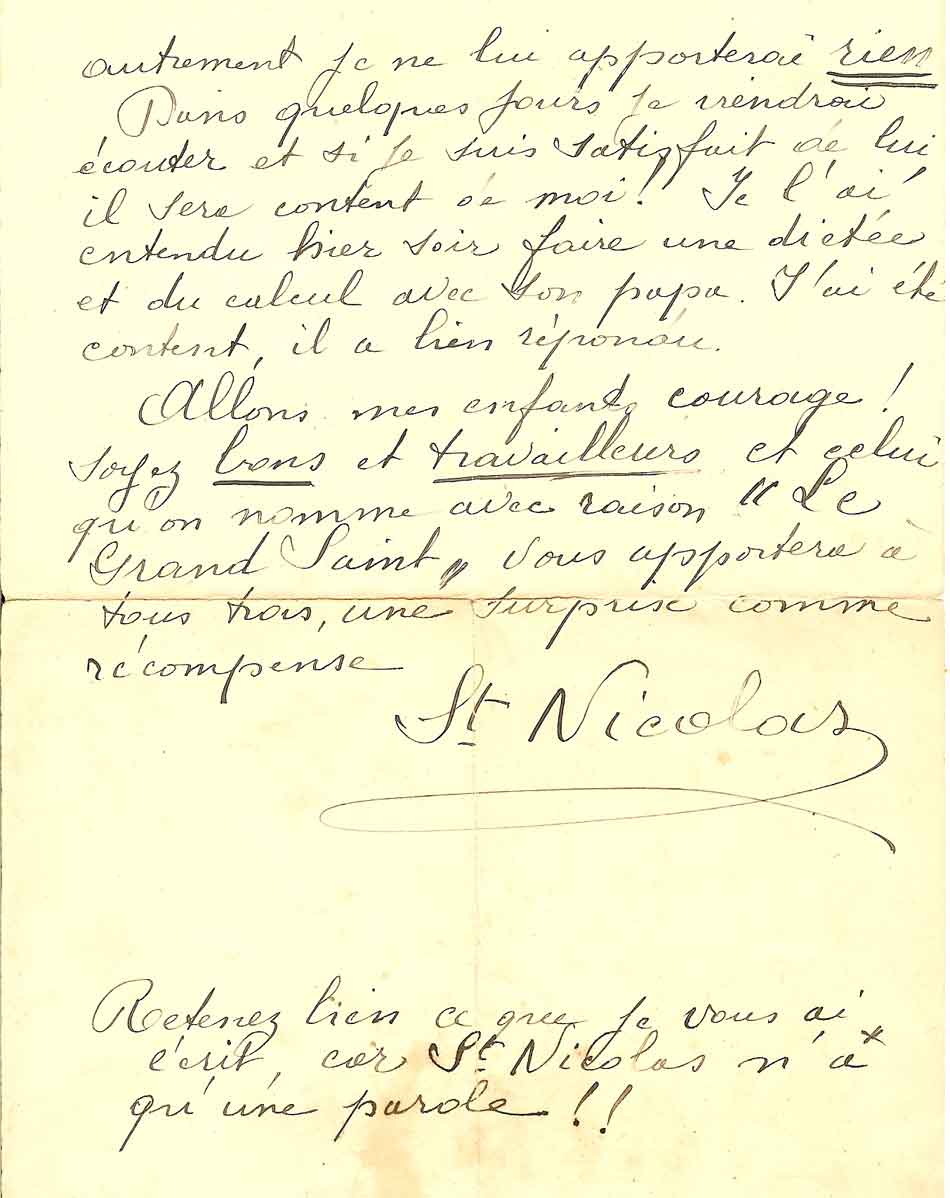 autrement je ne lui apporterai rien
Dans quelques jours je viendrai
écouter et si je suis satisfait de lui
il sera content de moi ! Je l'ai
entendu hier soir faire une dictée
et du calcul avec son papa. J'ai été
content, il a bien répondu.
Allons mes enfants courage !
soyez bons et travailleurs et celui
qu'on nomme avec raison "Le
Grand Saint" vous apportera à
tous trois, une surprise comme
récompense
St Nicolas
Retenez bien ce que je vous ai
écrit, car St Nicolas n'a
qu'une parole !!